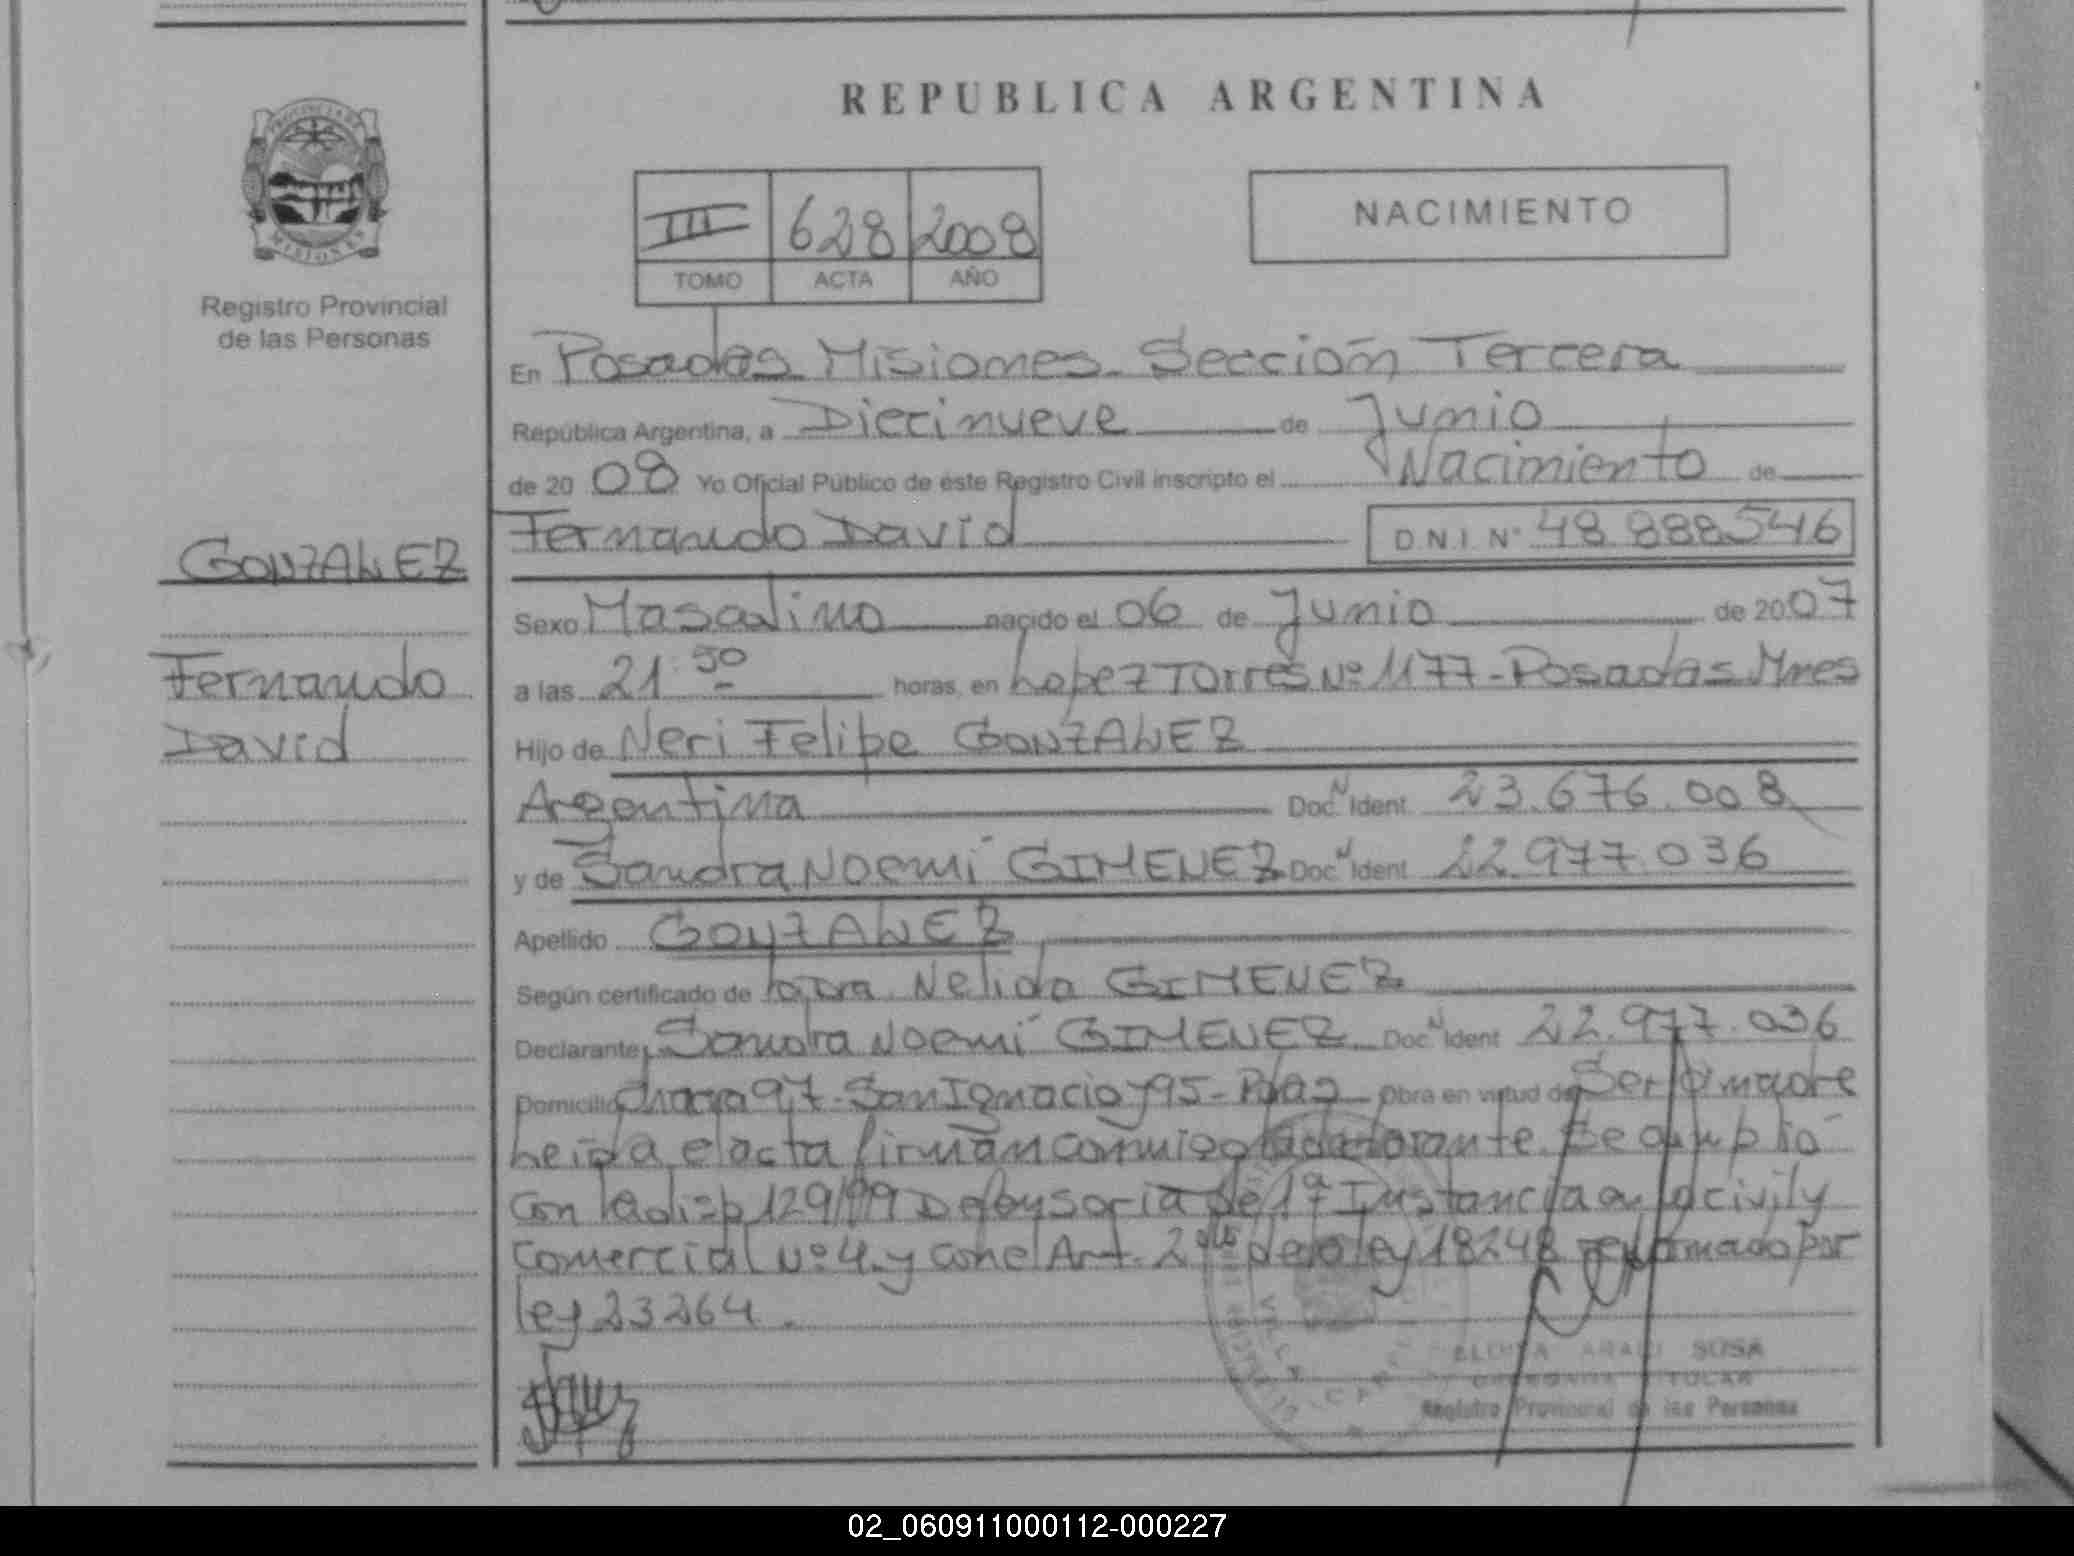 REPUBLICA ARGENTINA
PROVINCIA DE
MISIONES
Registro Provincial
de las Personas
III 628 2008
TOMO ACTA AÑO
NACIMIENTO
En Posadas Misiones. Sección Tercera
República Argentina, a Diecinueve de Junio
de 20 08 Yo Oficial Público de este Registro Civil inscripto el Nacimiento de
GONZALEZ
Fernando David
Fernando David D.N.I. Nº 48 888546
Sexo Masculino nacido el 06 de Junio de 20 07
a las 21:50 horas, en Lopez Torres Nº 1177-Posadas Mnes
Hijo de Neri Felipe GONZALEZ
Argentina Doc. N Ident 23.676.008
y de Sandra Noemí GIMENEZ Doc. N Ident 22.977.036
Apellido GONZALEZ
Según certificado de Nelida GIMENEZ
Declarante Sandra Noemí GIMENEZ Doc. N Ident 22.977.036
Domicilio Chacra 97-San Ignacio 795-Pdas Obra en virtud de Ser la madre
Leída el acta firman conmigo la declarante. Se cumplió
con la disp 129/99 Defensoria de 1ª Instancia en lo civil y
Comercial Nº 4 y con el Art. 2 de la ley 18248 reformado por
ley 23264.
ARALI SOSA
TITULAR
Registro Provincial de las Personas
02_060911000112-000227